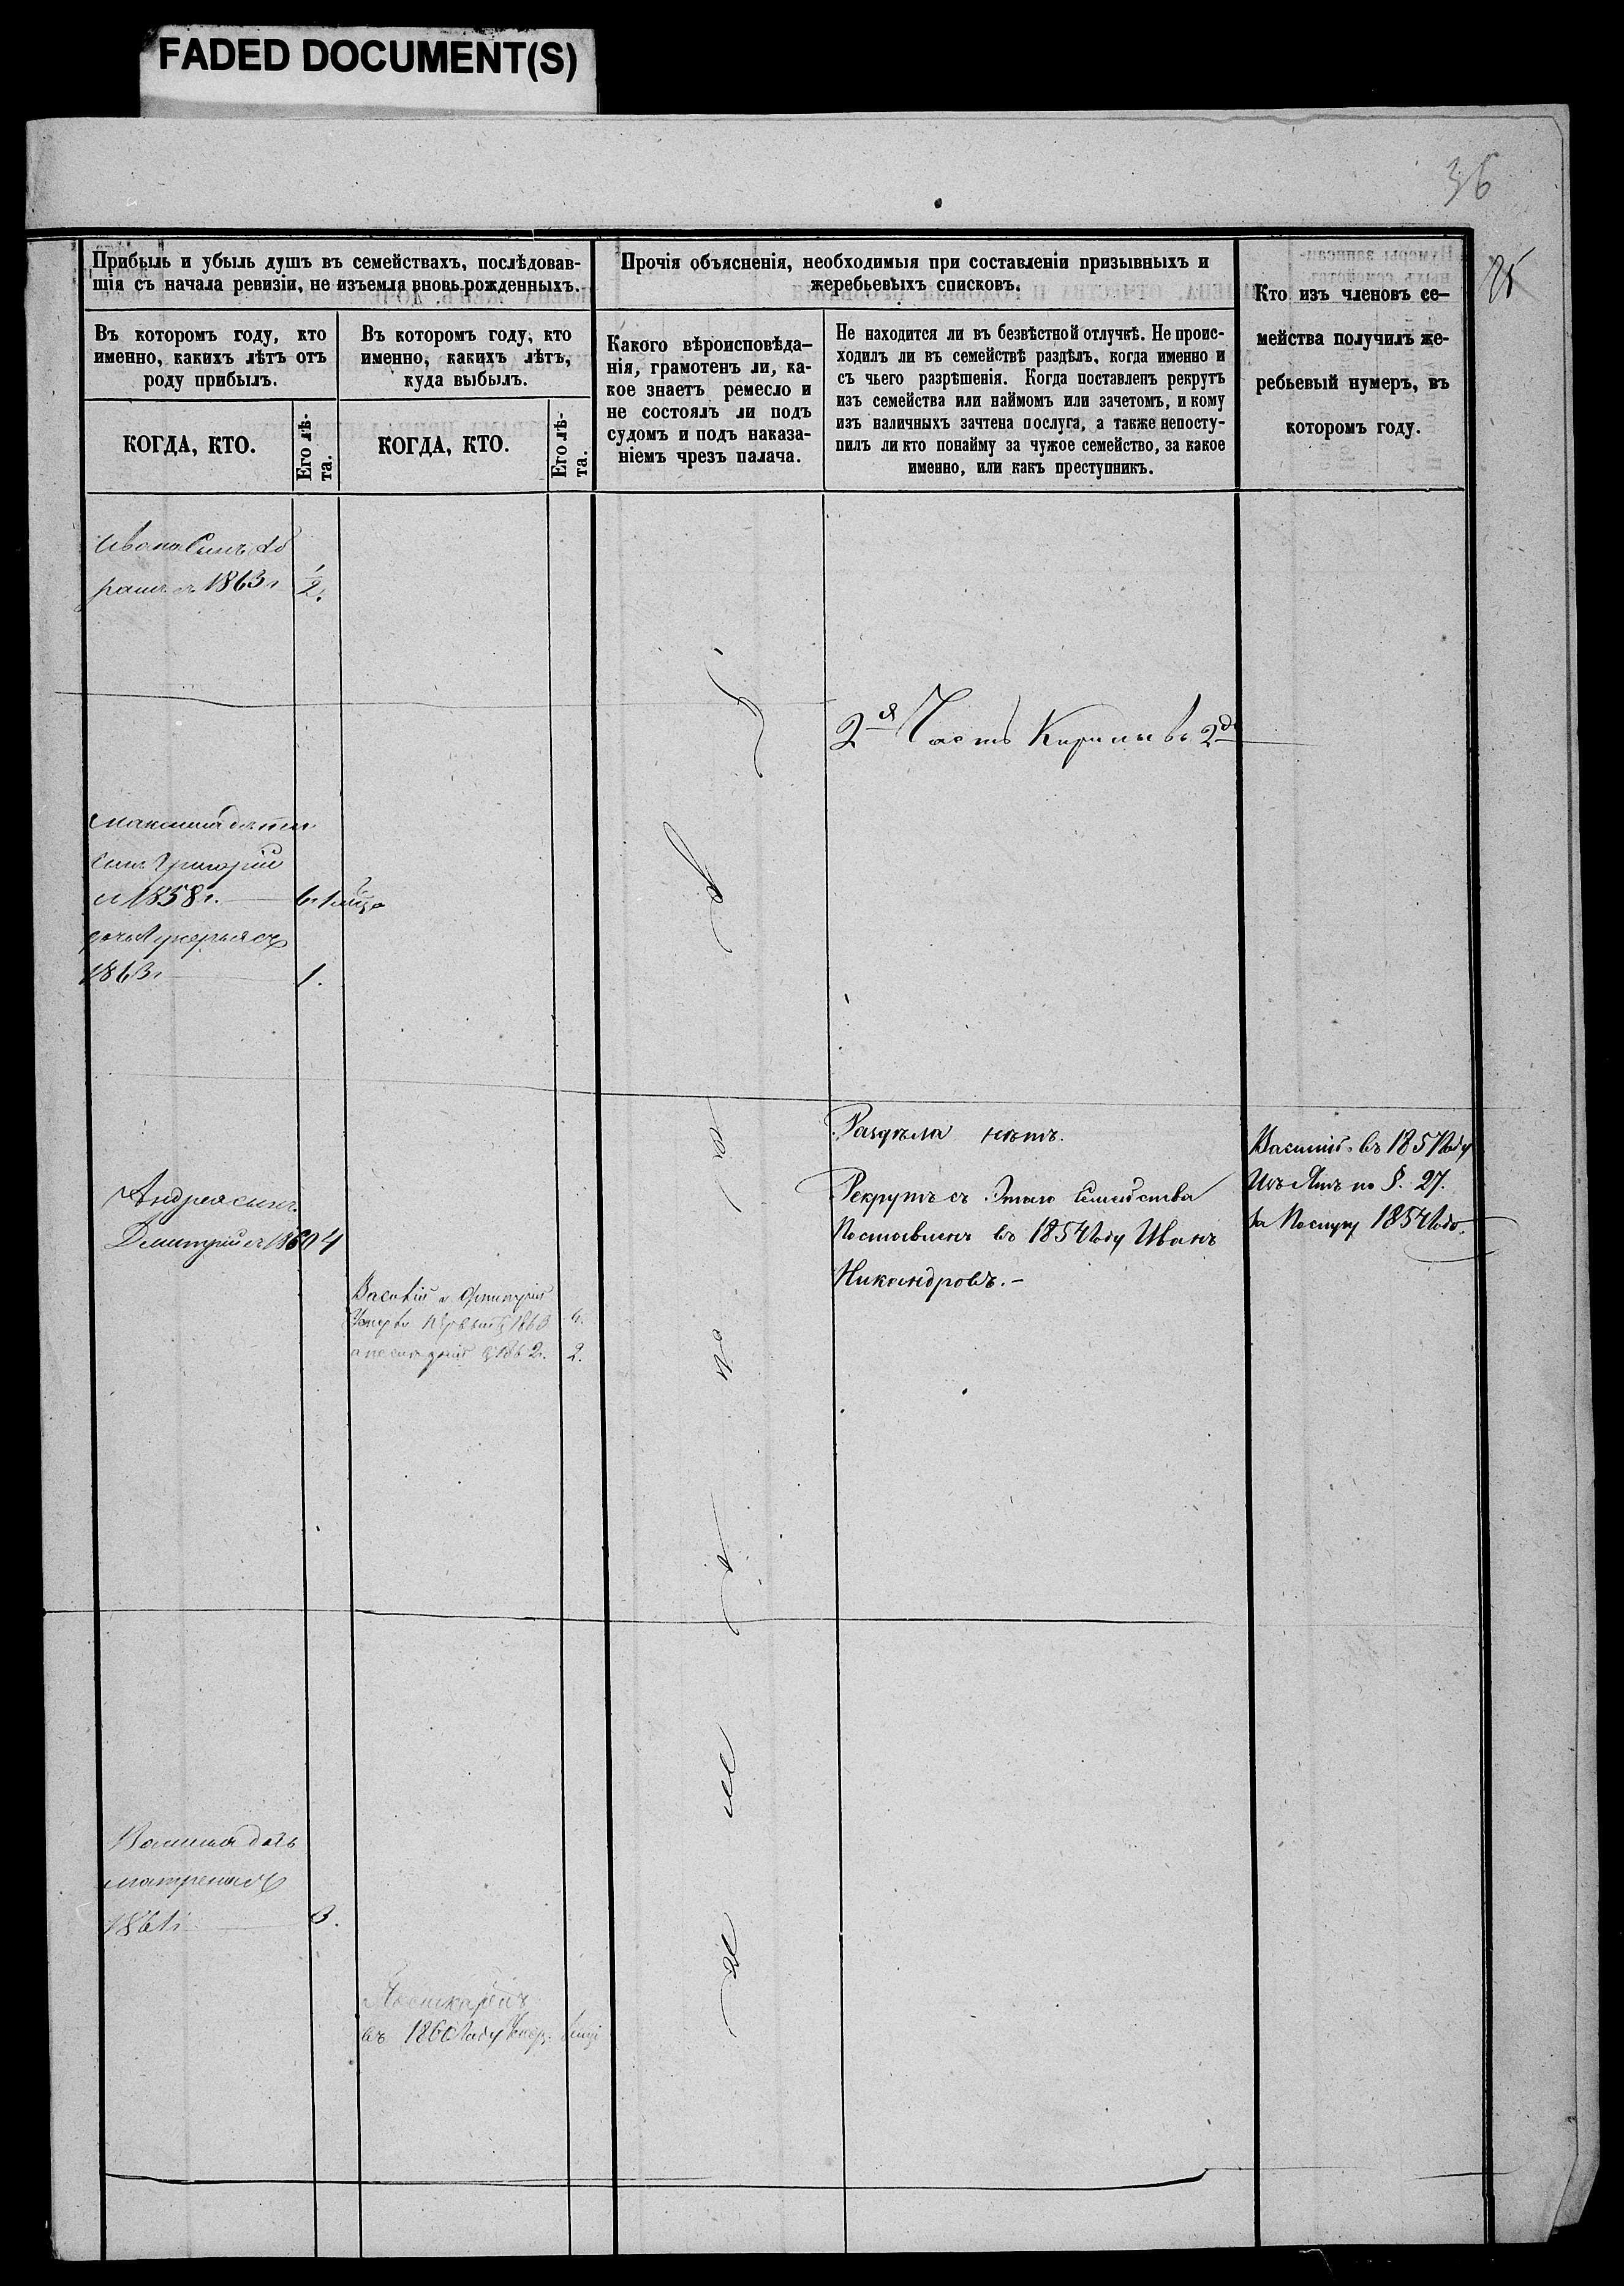 FADED DOCUMENT(S)
36
Прибыль и убыль душъ въ семействахъ, послѣдовав-
шія съ начала ревизіи, не изъемля вновь рожденныхъ.
Прочія объясненія, необходимыя при составленіи призывныхъ и
жеребьевыхъ списковъ.
Кто изъ членовъ се-
мейства получилъ же-
ребьевый нумеръ, въ
которомъ году.
Въ которомъ году, кто
именно, какихъ лѣтъ отъ
роду прибылъ.
Въ которомъ году, кто
именно, какихъ лѣтъ,
куда выбылъ.
Какого вѣроисповѣда-
нія, грамотенъ ли, ка-
кое знаетъ ремесло и
не состоялъ ли подъ
судомъ и подъ наказа-
ніемъ чрезъ палача.
Не находится ли въ безвѣстной отлучкѣ. Не проис-
ходилъ ли въ семействѣ раздѣлъ, когда именно и
съ чьего разрѣшенія. Когда поставленъ рекрутъ
изъ семейства или наймомъ или зачетомъ, и кому
изъ наличныхъ зачтена послуга, а также непосту-
пилъ ли кто понайму за чужое семейство, за какое
именно, или какъ преступникъ.
КОГДА, КТО.
Его лѣ-
та.
КОГДА, КТО.
Его лѣ-
та.
Ивана Сынъ Аб
рамъ съ 1863 г
2я Часть
Максима дѣти
сынъ Григорій
съ 1858 г.
дочь Лукерья съ
1863 г 1.
Раздѣла нѣтъ.
Рекрутъ съ Этаго Семейства
Поставленъ въ 1854 Году Иванъ
Никандровъ.-
Василій въ 1857 Году
по §. 27.
за Послугу 1854 Года
Андрея сынъ
Дмитрий съ 1860 4
Василій и Дмитрій
1863
1862. 2.
Василья дочь
Матрена съ
1861 г 3.
въ 1860 Году